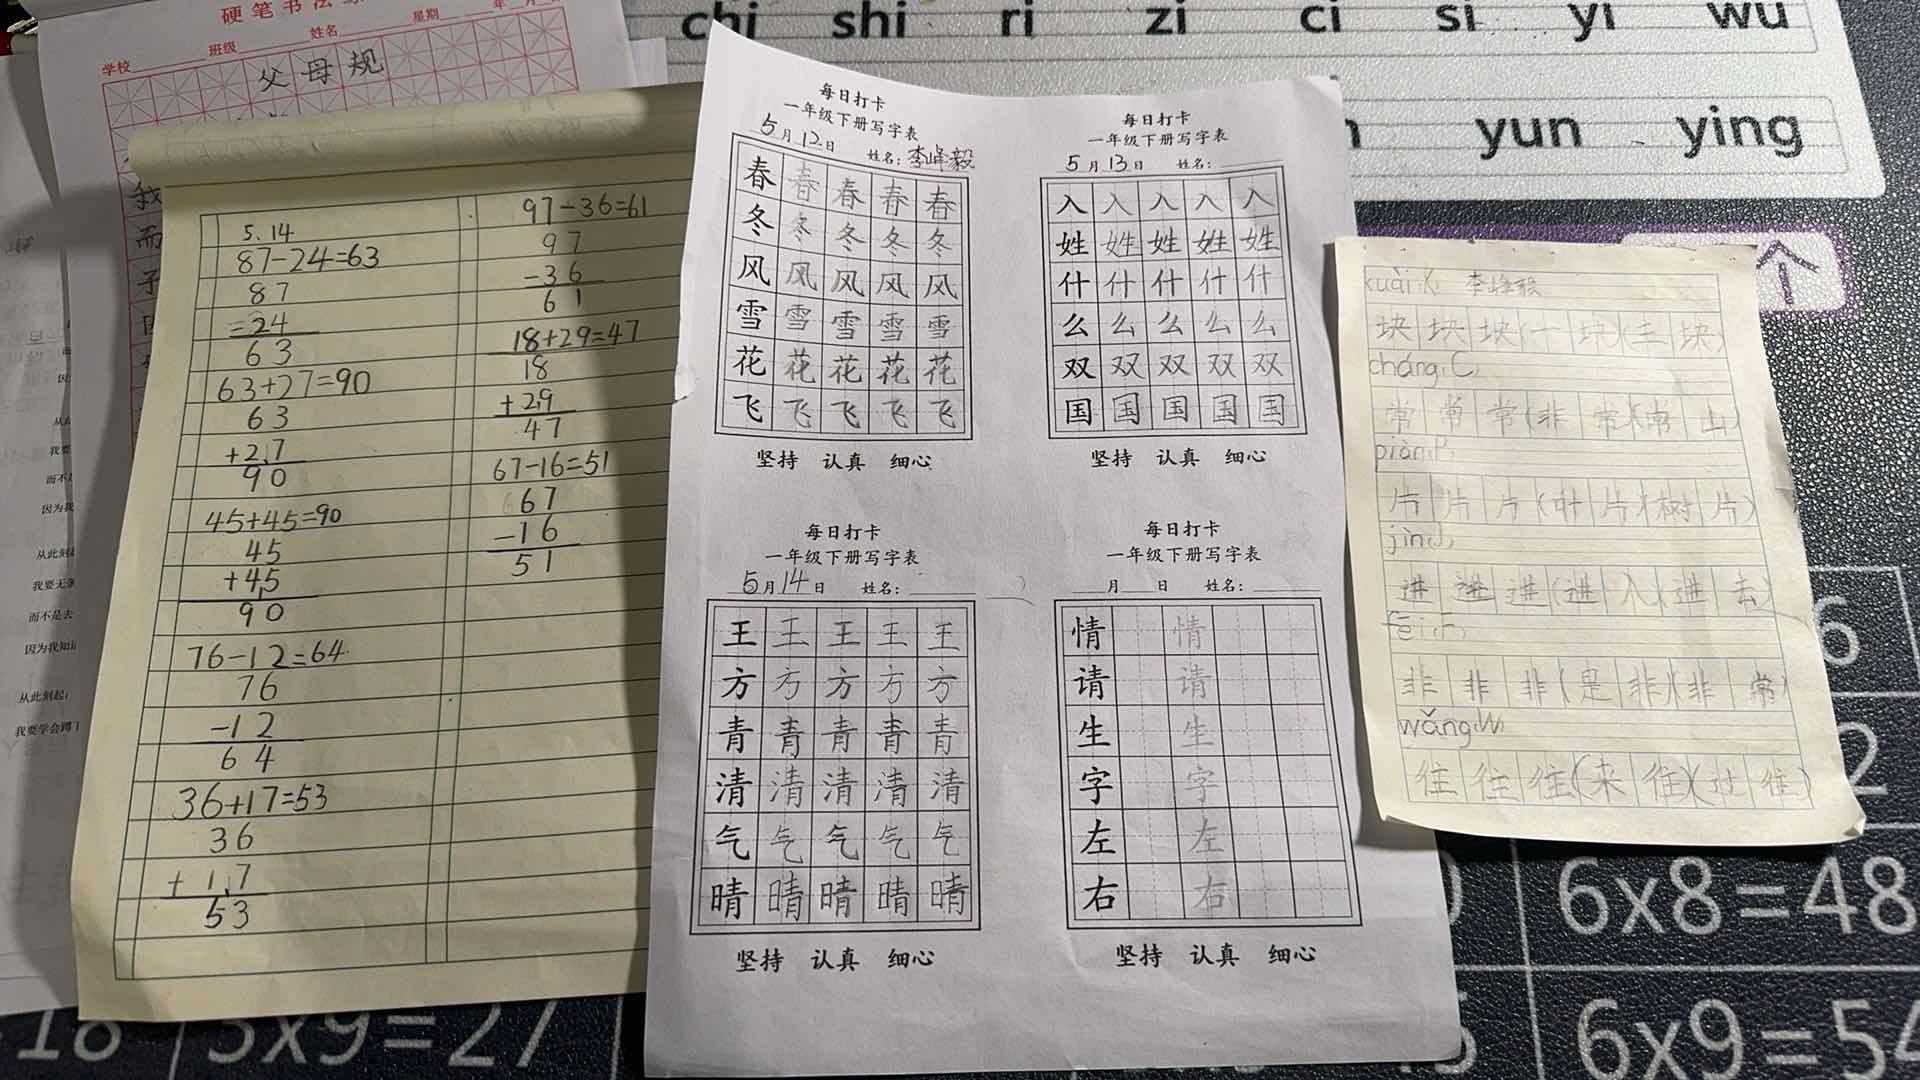 硬笔书法
学校 班级 姓名 星期 年 月
父母规
5.14
87-24=63
87
=24
63
63+27=90
63
+27
90
45+45=90
45
+45
90
76-12=64
76
-12
64
36+17=53
36
+17
53
97-36=61
97
-36
61
18+29=47
18
+29
47
67-16=51
67
-16
51
每日打卡
一年级下册写字表
5月12日 姓名:李峰毅
春春春春春
冬冬冬冬冬
风风风风风
雪雪雪雪雪
花花花花花
飞飞飞飞飞
坚持 认真 细心
每日打卡
一年级下册写字表
5月13日 姓名:
入入入入入
姓姓姓姓姓
什什什什什
么么么么么
双双双双双
国国国国国
坚持 认真 细心
每日打卡
一年级下册写字表
5月14日 姓名:
王王王王王
方方方方方
青青青青青
清清清清清
气气气气气
晴晴晴晴晴
坚持 认真 细心
每日打卡
一年级下册写字表
月 日 姓名:
情 情
请 请
生 生
字 字
左 左
右 右
坚持 认真 细心
kuài,K, 李峰毅
块块块(一块)(三块)
cháng,C,
常常常(非常)(常山)
piàn,P,
片片片(叶片)(树片)
jìn,J,
进进进(进入)(进去)
fēi,F,
非非非(是非)(非常)
wǎng,W,
往往往(来往)(过往)
chi shi ri zi ci si yi wu
yun ying
个
6x8=48
3x9=27
6x9=54
我
而
子
因为我
从此刻
我要
而不是去
因为我知
从此刻起
我要学会蹲下